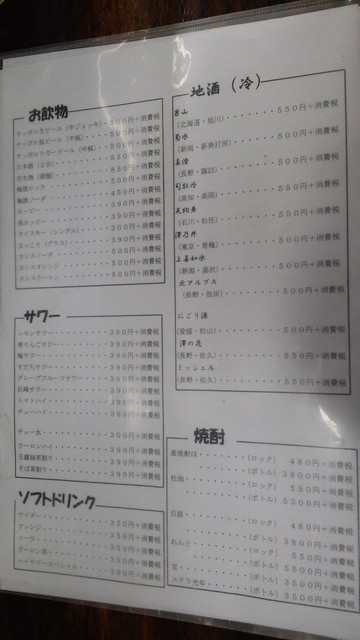 お飲物
サッポロ生ビール（中ジョッキ）・500円＋消費税
サッポロ瓶ビール（中瓶）・・・・500円＋消費税
サッポロラガービール（中瓶）・・500円＋消費税
日本酒（２合）・・・・550円＋消費税
冷生酒・・・・850円＋消費税
梅酒ロック・・・・500円＋消費税
梅酒ソーダ・・・・450円＋消費税
ホッピー・・・・390円＋消費税
黒ホッピー・・・・390円＋消費税
ウイスキー（シングル）・・・・300円＋消費税
まっこり（グラス）・・・・390円＋消費税
カシスソーダ・・・・500円＋消費税
カシスオレンジ・・・・500円＋消費税
カシスウーロン・・・・500円＋消費税
サワー
レモンサワー・・・・390円＋消費税
青りんごサワー・・・・390円＋消費税
梅サワー・・・・390円＋消費税
すだちサワー・・・・390円＋消費税
グレープフルーツサワー・・・・390円＋消費税
巨峰サワー・・・・390円＋消費税
トマトハイ・・・・390円＋消費税
チューハイ・・・・390円＋消費税
チュー水・・・・300円＋消費税
ウーロンハイ・・・・390円＋消費税
玉露緑茶割り・・・・390円＋消費税
そば茶割り・・・・390円＋消費税
ソフトドリンク
サイダー・・・・350円＋消費税
オレンジ・・・・350円＋消費税
コーラ・・・・350円＋消費税
ウーロン茶・・・・350円＋消費税
ハイサワースペシャル・・・・390円＋消費税
地酒（冷）
男山
（北海道・旭川）・・・・550円＋消費税
菊水
（新潟・新発打田）・・・・500円＋消費税
真澄
（長野・諏訪）・・・・500円＋消費税
司牡丹
（高知・高岡）・・・・550円＋消費税
天狗舞
（石川・松任）・・・・550円＋消費税
澤乃井
（東京・青梅）・・・・500円＋消費税
上善如水
（新潟・湯沢）・・・・500円＋消費税
北アルプス
（長野・池田）・・・・500円＋消費税
にごり酒
（愛媛・松山）・・・・500円＋消費税
澤の花
（長野・佐久）・・・・550円＋消費税
ミッシェル
（長野・佐久）・・・・550円＋消費税
焼酎
・・・・（ロック）480円＋消費税
（ボトル）3800円＋消費税
・・・・（ロック）550円＋消費税
（ボトル）5300円＋消費税
・・・・（ロック）480円＋消費税
（ボトル）3800円＋消費税
れんと・・・・（ロック）550円＋消費税
（ボトル）3800円＋消費税
宝・・・・（ボトル）3500円＋消費税
（ボトル）3500円＋消費税